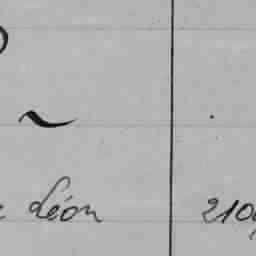 ~ .
Léon 210